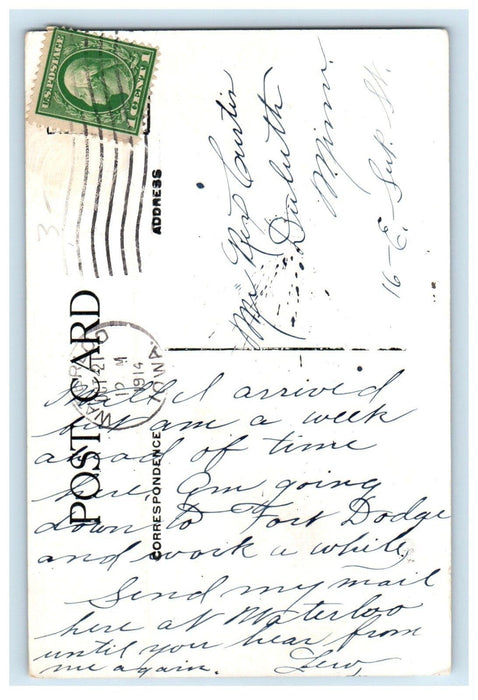 U.S. POSTAGE
1 CENT 1
POST CARD
ADDRESS
CORRESPONDENCE
WATERLOO
21
12 M
1914
IOWA.
Mr Ben Curtis
Duluth
Minn.
16-E. Sup. St.
Well I arrived
but am a week
ahead of time
here. Am going
down to Fort Dodge
and work a while.
Send my mail
here at Waterloo
until you hear from
me again. Lew,